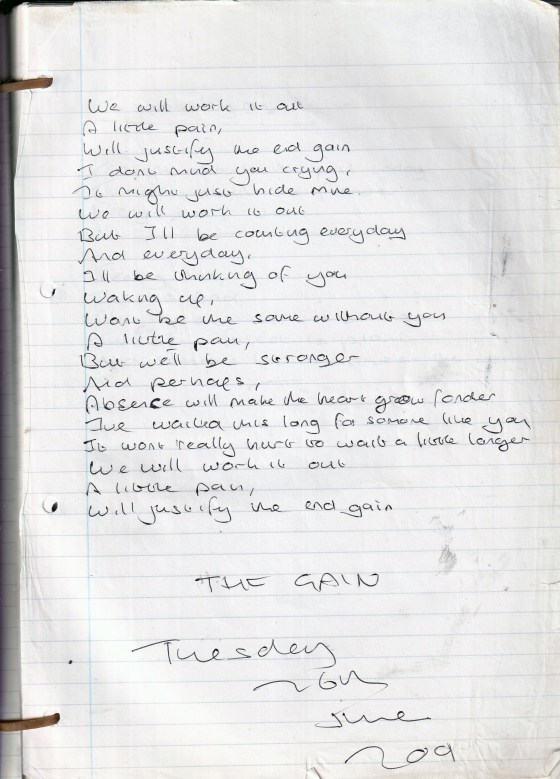 We will work it out
A little pain,
Will justify the end gain
I dont mind you crying,
It might just hide mine.
We will work it out
But I'll be counting everyday
And everyday,
I'll be thinking of you
Waking up,
Wont be the same without you
A little pain,
But we'll be stronger
And perhaps,
Absence will make the heart grow fonder
I've waited this long for someone like you
It wont really hurt to wait a little longer
We will work it out
A little pain,
Will justify the end gain
THE GAIN
Tuesday
26th
June